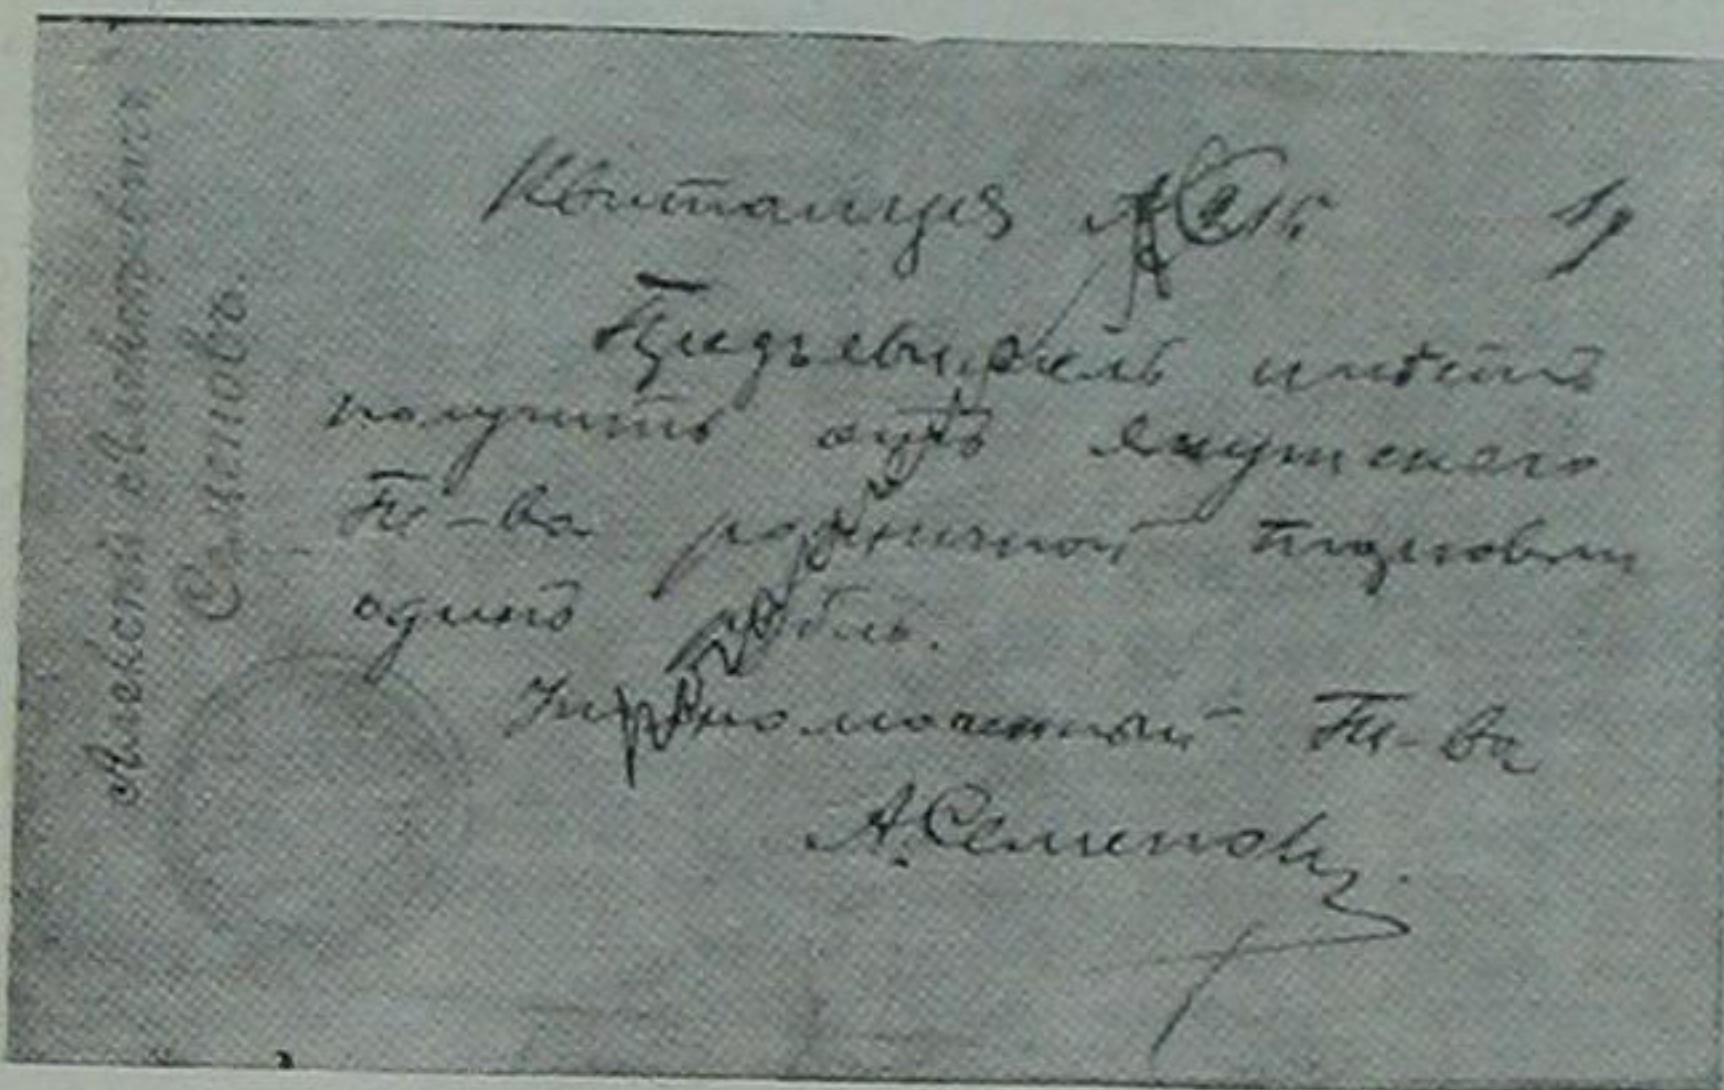 Алексѣй Аѳанасьевичъ
Семеновъ.
Квитанція № 1р
Предъявитель имѣетъ
получить отъ Якутскаго
Т-ва розничной торговли
одинъ рубль.
Уполномоченный Т-ва
А. Семеновъ